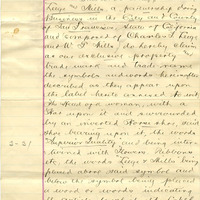 Lieges & Mills a partnership doing
business in the City and County
of San Francisco State of California
and composed of Charles S. Lieges
and W. F. Mills do hereby claim
as our exclusive property a
trade mark and trade name
the symbols and words hereafter
described as they appear upon
the label hereto annexed. To wit
The Head of a woman, with a
Star upon it and surrounded
by an inverted Horse shoe, said
shoe bearing upon it, the words
"Superior Quality" and being inter-
twined with flowers, Ribbons
etc, the words Lieges & Mills being
placed above said symbol and
below the symbol being placed
a word or words indicating
2-21